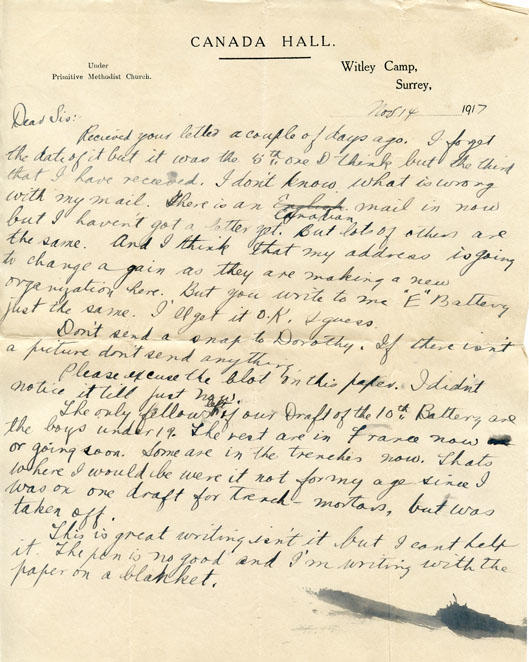 CANADA HALL.
Under
Primitive Methodist Church.
Witley Camp,
Surrey,
Nov 14 1917
Dear Sis:
Received your letter a couple of days ago. I forget
the date of it but it was the 5th one I think, but the third
that I have received. I don't know what is wrong
with my mail. There is an English mail in now
Canadian
but I haven't got a letter yet. But lot of others are
the same. And I think that my address is going
to change again as they are making a new
organization here. But you write to me "E" Battery
just the same. I'll get it O.K. I guess.
Don't send a snap to Dorothy. If there isn't
a picture don't send anything.
Please excuse the blot on this paper. I didn't
notice it till just now.
left
The only fellows of our Draft of the 10th Battery are
the boys under 19. The rest are in France now
or going soon. Some are in the trenches now. Thats
where I would be were it not for my age since I
was on one draft for trench-mortars, but was
taken off.
This is great writing isn't it but I cant help
it. The pen is no good and I'm writing with the
paper on a blanket.